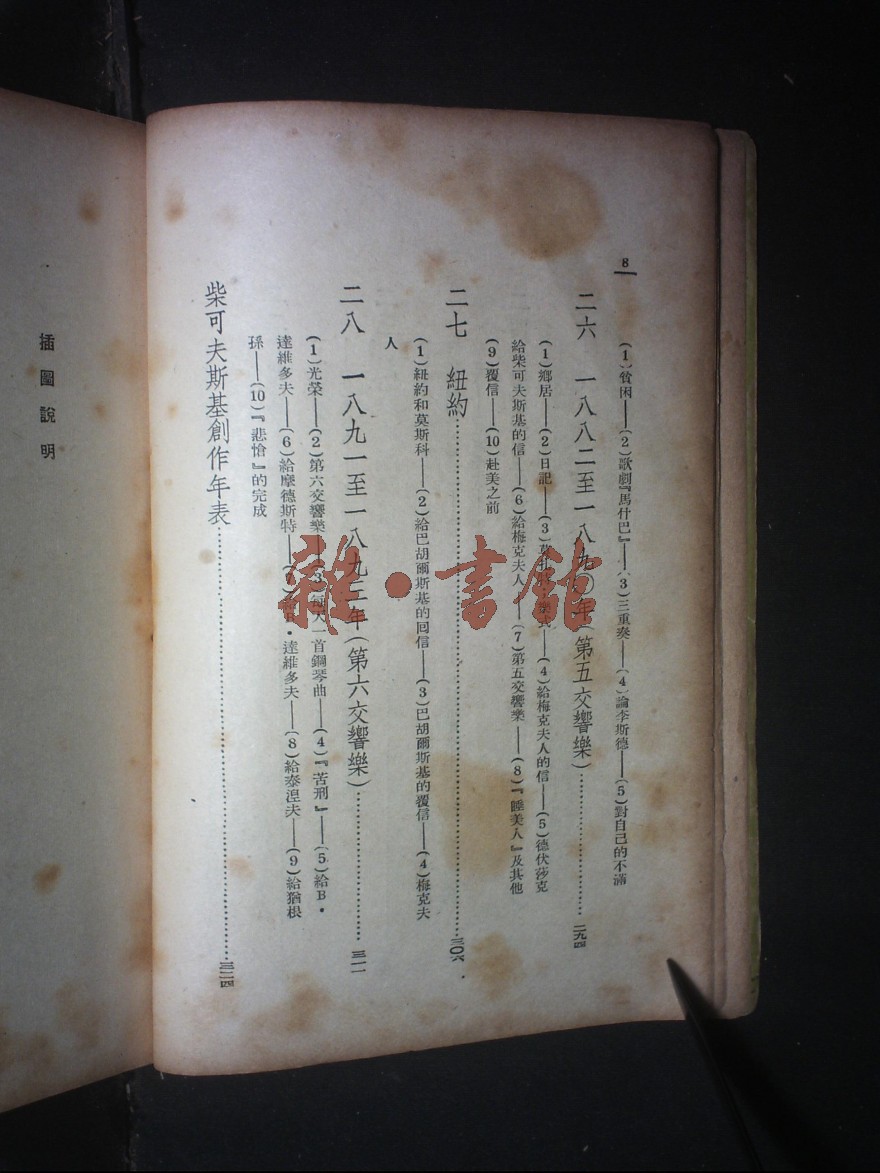 8
(1)貧困——(2)歌劇『馬什巴』——(3)三重奏——(4)論李斯德——(5)對自己的不滿
二六 一八八二至一八九〇年(第五交響樂)……二九四
(1)鄉居——(2)日記——(3)——(4)給梅克夫人的信——(5)德伏莎克
給柴可夫斯基的信——(6)給梅克夫人——(7)第五交響樂——(8)『睡美人』及其他
(9)覆信——(10)赴美之前
二七 紐約……三〇六
(1)紐約和莫斯科——(2)給巴胡爾斯基的囘信——(3)巴胡爾斯基的覆信——(4)梅克夫
人
二八 一八九一至一八九三年(第六交響樂)……三一一
(1)光榮——(2)第六交響樂——(3)每天一首鋼琴曲——(4)『苦刑』——(5)給B・
達維多夫——(6)給摩德斯特——(7)給B・達維多夫——(8)給泰湼夫——(9)給猶根
孫——(10)『悲愴』的完成
柴可夫斯基創作年表……三二四
插圖說明
雜・書館